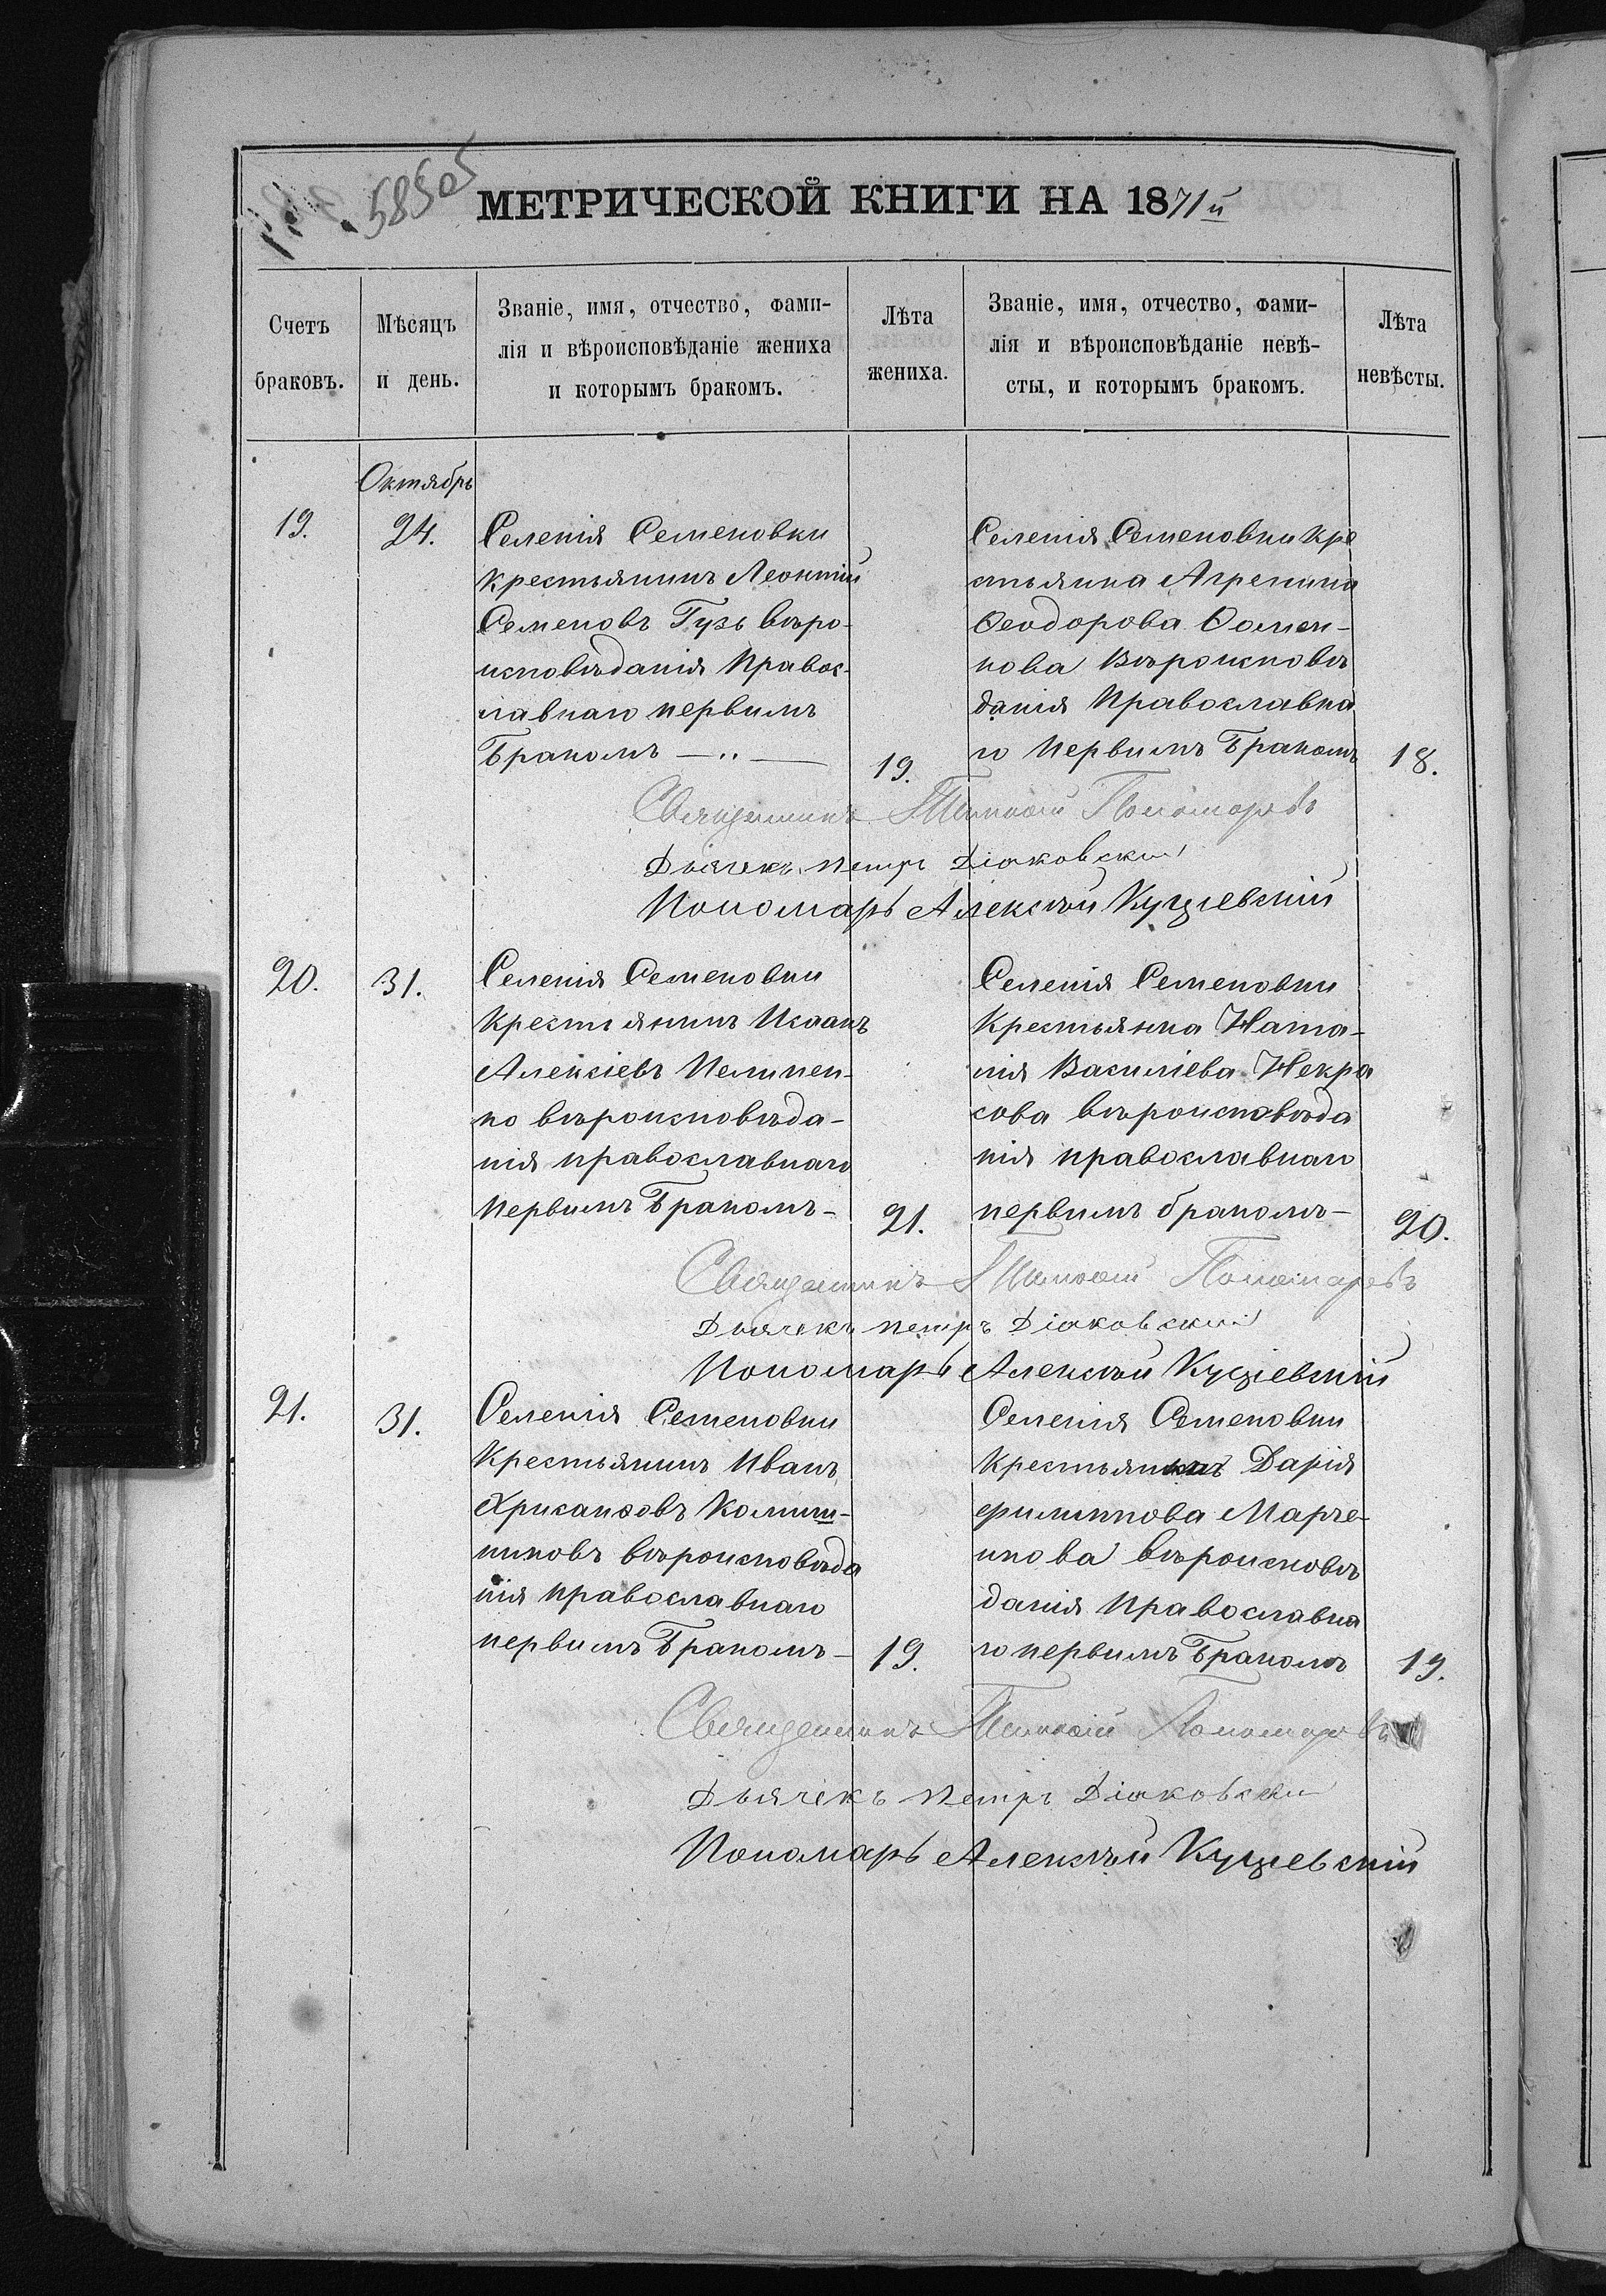 58505
МЕТРИЧЕСКОЙ КНИГИ НА 1871й
Счетъ браковъ.
Мѣсяцъ и день.
Званіе, имя, отчество, фами-
лія и вѣроисповѣданіе жениха
и которымъ бракомъ.
Лѣта жениха.
Званіе, имя, отчество, фами-
лія и вѣроисповѣданіе невѣ-
сты, и которымъ бракомъ.
Лѣта невѣсты.
Октябрь
19.
24.
Селенія Семеновки
крестьянинъ Леонтій
Семеновъ Гузь вѣро-
исповѣданія Правос-
лавнаго первимъ
Бракомъ — .. —
19.
Селенія Семеновки кре
стьянка Агрепина
Ѳеодорова Ѳомен-
кова Вѣроисповѣ
данія Православна
го Первимъ Бракомъ
18.
Священникъ Тимоѳей Пономаревъ
Дьячекъ Петръ Діаковскій
Пономарь Алексѣй Кущевскій
20.
31.
Селенія Семеновки
Крестьянинъ Исаакъ
Алексіевъ Пелипен-
ко вѣроисповѣда-
нія православнаго
Первимъ Бракомъ-
21.
Селенія Семеновки
Крестьянка Ната-
лія Василіева Некра
сова вѣроисповѣда
нія православнаго
первимъ бракомъ-
20.
Священникъ Тимоѳей Пономаревъ
Дьячекъ Петръ Діаковскій
Пономарь Алексѣй Кущевскій
21.
31.
Селенія Семеновки
Крестьянинъ Иванъ
Хрисанѳовъ Колиш-
никовъ вѣроисповѣда
нія Православнаго
первимъ Бракомъ-
19.
Селенія Семеновки
Крестьянка Дарія
Филиппова Марче-
нкова вѣроисповѣ
данія Православна
го первимъ Бракомъ
19.
Священникъ Тимоѳей Пономаревъ
Дьячекъ Петръ Діаковскій
Пономарь Алексѣй Кущевскій